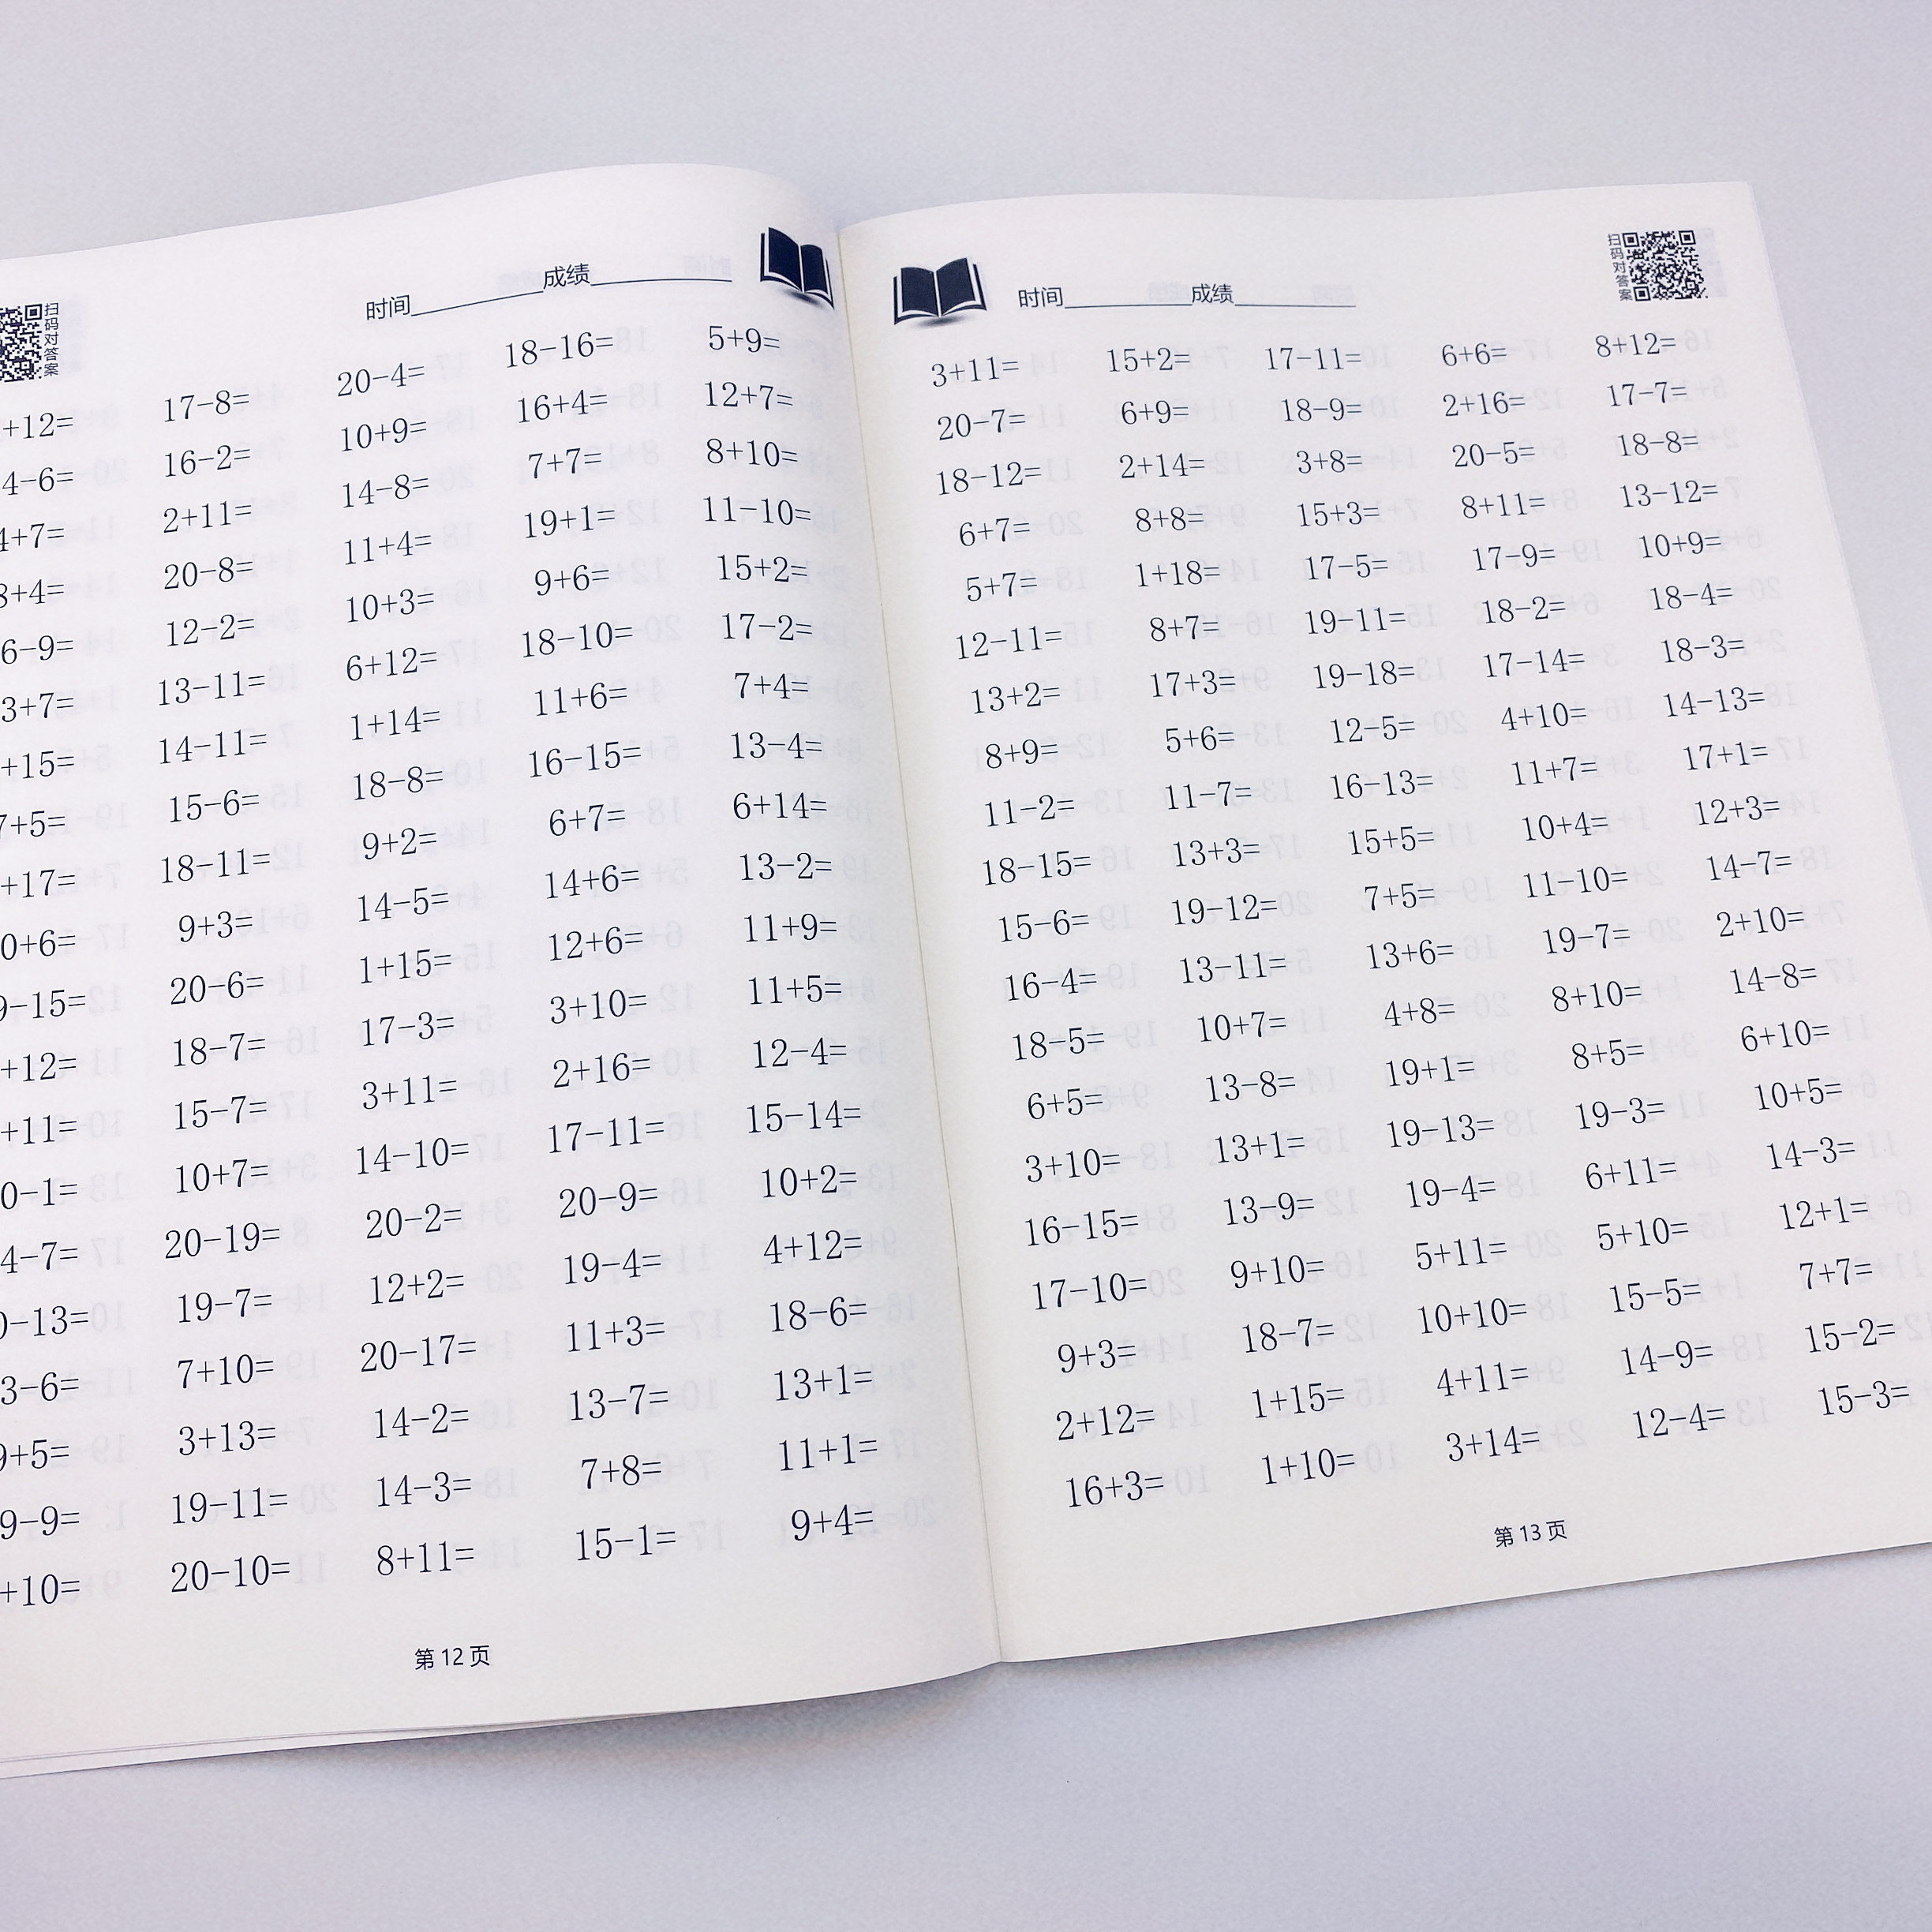 扫码对答案
时间________成绩________
+12= 17-8= 20-4= 18-16= 5+9=
4-6= 16-2= 10+9= 16+4= 12+7=
4+7= 2+11= 14-8= 7+7= 8+10=
8+4= 20-8= 11+4= 19+1= 11-10=
6-9= 12-2= 10+3= 9+6= 15+2=
3+7= 13-11= 6+12= 18-10= 17-2=
+15= 14-11= 1+14= 11+6= 7+4=
7+5= 15-6= 18-8= 16-15= 13-4=
+17= 18-11= 9+2= 6+7= 6+14=
0+6= 9+3= 14-5= 14+6= 13-2=
9-15= 20-6= 1+15= 12+6= 11+9=
+12= 18-7= 17-3= 3+10= 11+5=
+11= 15-7= 3+11= 2+16= 12-4=
0-1= 10+7= 14-10= 17-11= 15-14=
4-7= 20-19= 20-2= 20-9= 10+2=
0-13= 19-7= 12+2= 19-4= 4+12=
3-6= 7+10= 20-17= 11+3= 18-6=
9+5= 3+13= 14-2= 13-7= 13+1=
9-9= 19-11= 14-3= 7+8= 11+1=
+10= 20-10= 8+11= 15-1= 9+4=
第 12 页
时间________成绩________
扫码对答案
3+11= 15+2= 17-11= 6+6= 8+12=
20-7= 6+9= 18-9= 2+16= 17-7=
18-12= 2+14= 3+8= 20-5= 18-8=
6+7= 8+8= 15+3= 8+11= 13-12=
5+7= 1+18= 17-5= 17-9= 10+9=
12-11= 8+7= 19-11= 18-2= 18-4=
13+2= 17+3= 19-18= 17-14= 18-3=
8+9= 5+6= 12-5= 4+10= 14-13=
11-2= 11-7= 16-13= 11+7= 17+1=
18-15= 13+3= 15+5= 10+4= 12+3=
15-6= 19-12= 7+5= 11-10= 14-7=
16-4= 13-11= 13+6= 19-7= 2+10=
18-5= 10+7= 4+8= 8+10= 14-8=
6+5= 13-8= 19+1= 8+5= 6+10=
3+10= 13+1= 19-13= 19-3= 10+5=
16-15= 13-9= 19-4= 6+11= 14-3=
17-10= 9+10= 5+11= 5+10= 12+1=
9+3= 18-7= 10+10= 15-5= 7+7=
2+12= 1+15= 4+11= 14-9= 15-2=
16+3= 1+10= 3+14= 12-4= 15-3=
第 13 页